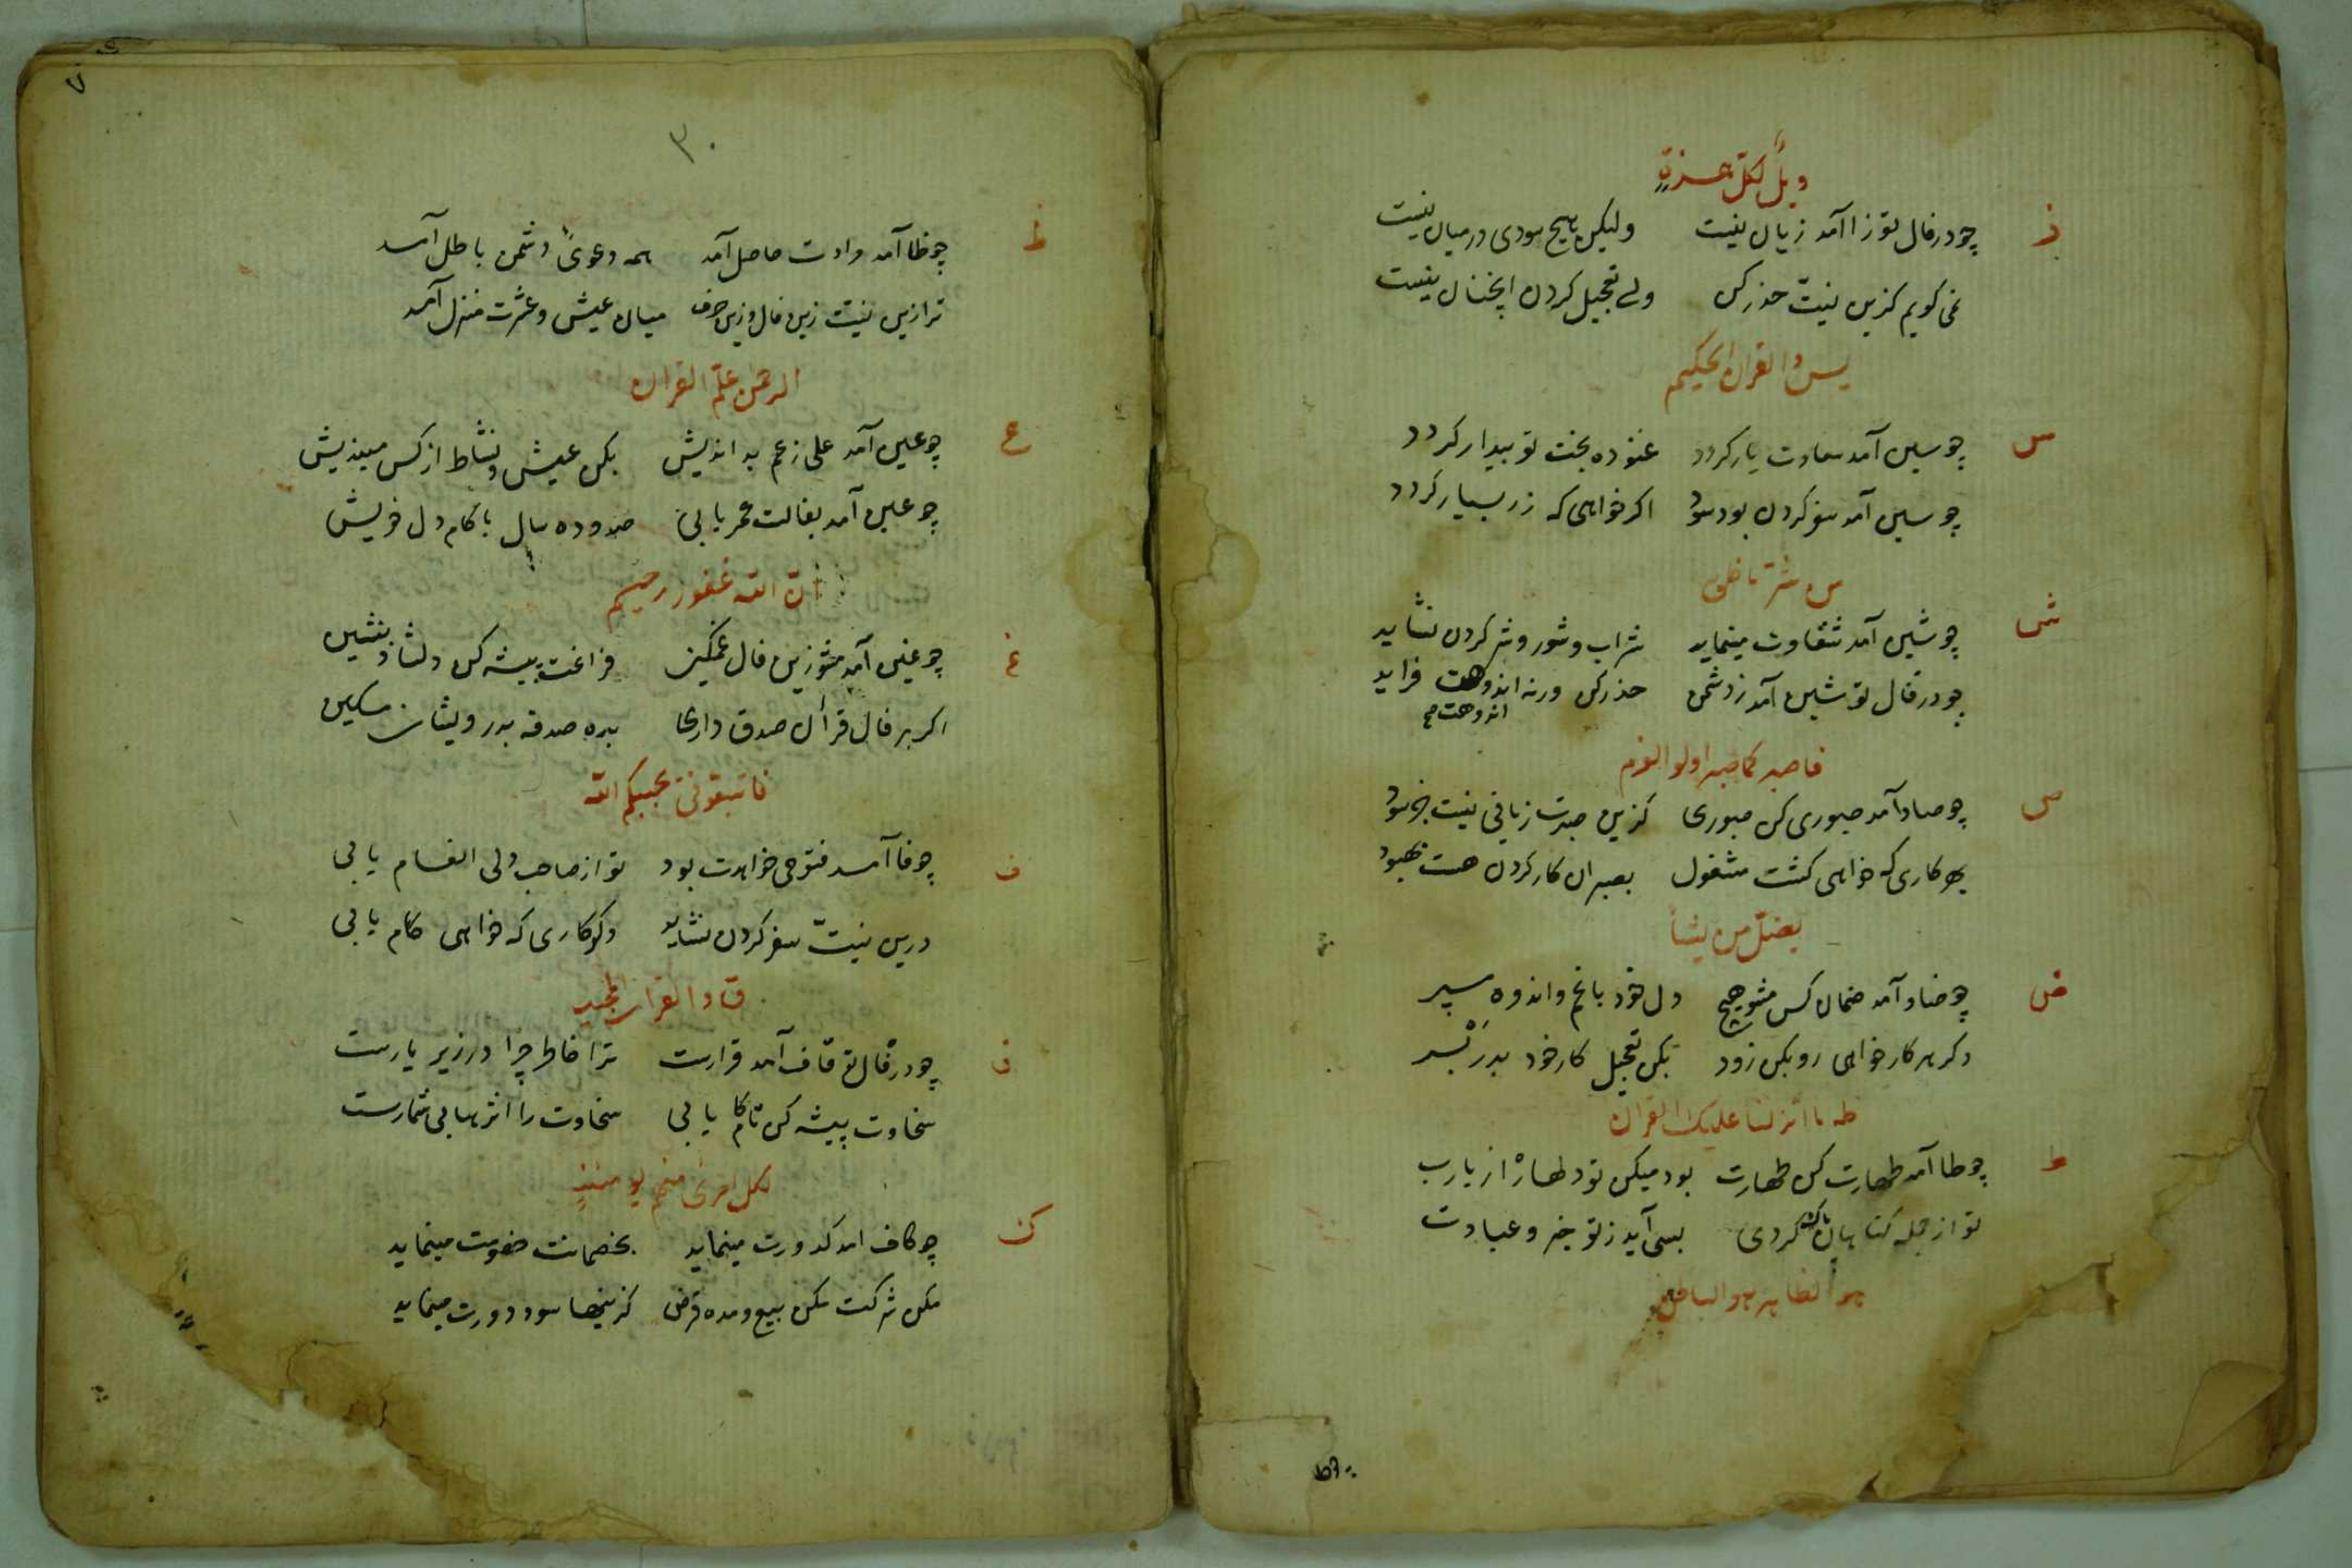 ویل لکل همزة
ز
چو در فال تو زا آمد زیان نیست ولیکن هیچ سودی در میان نیست
نمی گویم کزین نیّت حذر کن ولے تعجیل کردن اینچنان نیست
یس و القران الحکیم
س
چو سین آمد سعادت یار کردد غنوده بخت تو بیدار کردد
چو سین آمد سفر کردن بود سود اکر خواهی که زر بسیار کردد
من شر ما خلق
ش
چو شین آمد شقاوت مینماید شراب و شور و شر کردن نشاید
چو در فال تو شین آمد ز دشمن حذر کن ورنه اندوهت فزاید
اندوهت صح
فاصبر کما صبر اولو العزم
ص
چو صاد آمد صبوری کن صبوری کزین صبرت زیانی نیست جز سود
بهر کاری که خواهی کشت مشغول بصبر ان کار کردن هست بهبود
یضلّ من یشأ
ض
چو ضاد آمد ضمان کس مشو هیچ دل خود با غم و اندوه مسپر
دکر هر کار خواهی رو بکن زود بکن تعجیل کار خود بدر بر
طه ما انزلنا علیک القران
ط
چو طا آمد طهارت کن طهارت بود میکن تو دلها را از یارب
تو از جمله کناهان پاک کردی بسی آید ز تو خیر و عبادت
هو الظاهر هو الباطن
۷
۳۰
ظ
چو ظا آمد مرادت حاصل آمد همه دعویٔ دشمن باطل آمد
ترا زین نیّت زین فال و زین حرف میان عیش و عشرت منزل آمد
الرحمن علّم القران
ع
چو عین آمد علی زعم بد اندیش بکن عیش و نشاط از کس میندیش
چو عین آمد بفالت عمر یابی صد و ده سال با کام دل خویش
انّ الله غفور رحیم
غ
چو غین آمد مشو زین فال غمکین فراغت پیشه کن دلشاد بنشین
اکر بر فال قرآن صدق داری بده صدقه بدرویشان مسکین
فاتبعونی یحببکم الله
ف
چو فا آمد فتوحی خواهدت بود تو از صاحب دلی انعام یابی
درین نیّت سفر کردن نشاید دکر کاری که خواهی کام یابی
ق و القران المجید
ق
چو در فال تو قاف آمد قرارست ترا خاطر چرا در زیر بارست
سخاوت پیشه کن تا کام یابی سخاوت را اثرها بی شمارست
لکل امرئ منهم یومئذٍ
ک
چو کاف امد کدورت مینماید بخصمانت خصومت مینماید
مکن شرکت مکن بیع و مده قرض کزینها سود دورت مینماید